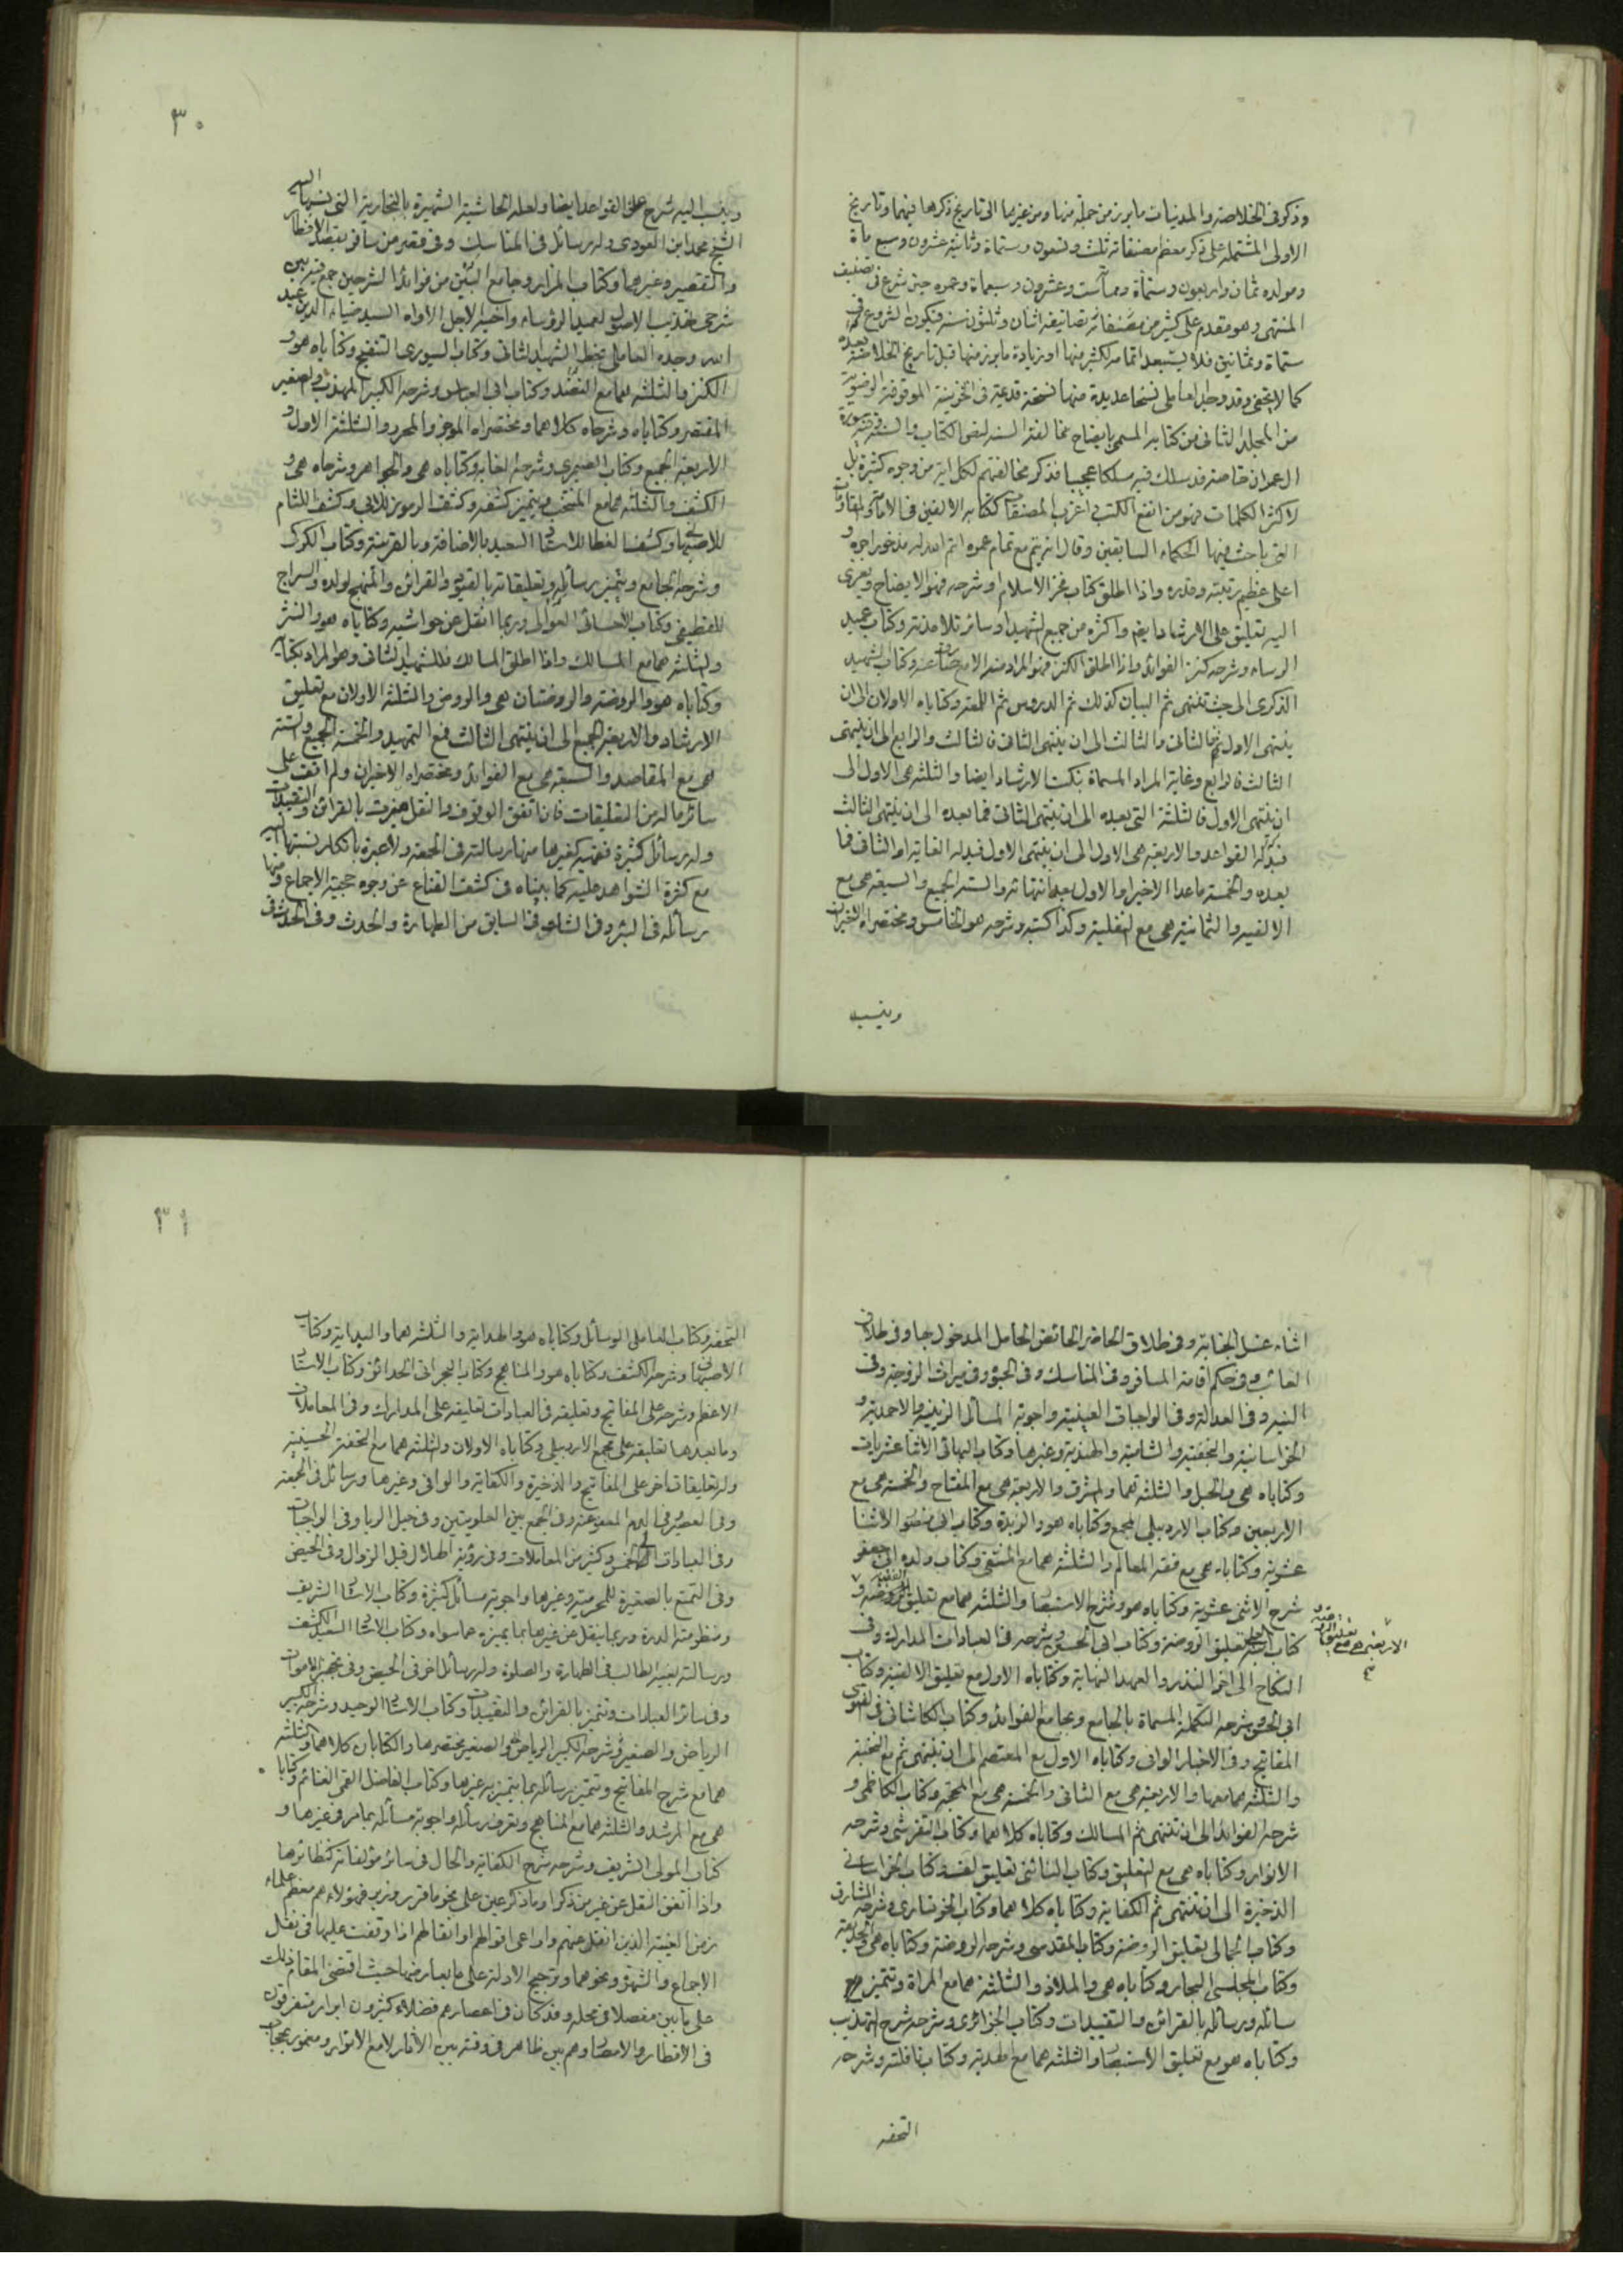 وذكر في الخلاصة والمدنيات ما برز من جملة منها ومن غيرها الى تاريخ ذكرها فيهما وتاريخ
الاولى المشتملة على ذكر معظم مصنفاته ثلث وتسعون وستماة وثانية عشرون وسبع ماة
ومولده ثمان واربعون وستماة ومات ست وعشرون وسبعماة وعمره حين شرع في تصنيف
المنتهى وهو مقدم على كثير من مصنفاته تصانيفه اثنان وثلثون سنة فيكون الشروع فيه في
ستماة وثمانين فلا يستبعد اتمامه لكثير منها او زيادة ما برز منها قبل تاريخ الخلاصة بعده
كما لا يخفى وقد وجد العاملي نسخا عديدة منها نسخة قديمة في الخزينة الموقوفة الرضوية
من المجلد الثاني من كتابه المسمى بايضاح مخالفة السنة لنص الكتاب والسنة فيه سورة
ال عمران خاصة قد سلك فيه مسلكا عجيبا فذكر مخالفتهم لكل اية من وجوه كثيرة بل
لاكثر الكلمات فهو من انفع الكتب واغرب المصنفات ككتابه الالفين في الامامة والمقاومات
التي باحث فيها الحكماء السابقين وقال انه يتم مع تمام عمره اتم الله له مذخور اجره و
اعلى عظيم رتبته وقدره واذا اطلق كتاب فخر الاسلام او شرحه فهو الايضاح ويعزى
اليه تعليق على الارشاد ايضا واكثره من جميع الشهيد او سائر تلامذته وكتاب عميد
الرساء وشرحه كنز الفوائد واذا اطلق الكنز فهو المراد منه الا مع صارف عنه وكتاب الشهيد
الذكرى الى حيث تنتهى ثم البيان كذلك ثم الدروس ثم اللمعة وكتاباه الاولان الى ان
ينتهى الاول ثم الثاني والثالث الى ان ينتهى الثاني فالثالث والرابع الى ان ينتهى
الثالث فالرابع وغاية المراد المسماة بنكت الارشاد ايضا والثلثة هى الاول الى
ان ينتهى الاول فالثلثة التي بعده الى ان ينتهى الثاني فما بعده الى ان ينتهى الثالث
فبدله القواعد والاربعة هى الاول الى ان ينتهى الاول فبدله الغاية او الثاني فما
بعده والخمسة ما عدا الاخير او الاول بعد انتهائه والستة الجميع والسبعة هى مع
الالفية والثمانية هى مع النفلية وكذا كتبه وشرحه هو الخامس ومختصراه الاخيران
وينسب
٣٠
وينسب اليه شرح على القواعد ايضا ولعله الحاشية الشهيرة بالنجارية التي نسبها اليه
الشيخ محمد ابن العودي وله رسائل في المناسك وفي قصر من سافر بقصد الافطار
والتقصير وغيرهما وكتاب المزار وجامع البين من فوائد الشرحين جمع فيه بين
شرحي تهذيب الاصول لعميد الرؤساء واخيه الاجل الاواه السيد ضياء الدين عبد
الله وجده العاملي بخط الشهيد الثاني وكتاب السيوري التنقيح وكتاباه هو و
الكنز والثلثة هما مع النضد وكتاب ابي العباس وشرحه الكبير المهذب والصغير
المقتصر وكتاباه وشرحاه كلاهما ومختصراه الموجز والمحرر والثلثة الاول و
الاربعة الجميع وكتاب الصيمري وشرحه الغاية وكتاباه هى والجواهر وشرحاه هى و
الكشف والثلثة هما مع المنتخب ويتميز كشفه وكشف الرموز للابي وكشف اللثام
للاصبهاني وكشف الغطا للاستاد السعيد بالاضافة وبالقرينة وكتاب الكركي
وشرحه الجامع ويتميز رسائله وتعليقاته بالقيود والقرائن والمنهج لولده والسراج
للقطيفي وكتاب الاحسائي العوالي وربما انقل عن حواشيه وكتاباه هو والنثر
والثلثة هما مع المسالك واذا اطلق المسالك فللشهيد الثاني وهو المراد بكتابه
وكتاباه هو والروضة والروضتان هى والروض والثلثة الاولان مع تعليق
الارشاد والاربعة الجميع الى ان ينتهى الثالث فمع التمهيد والخمسة الجميع والستة
هى مع المقاصد والسبعة هى مع الفوائد ومختصراه الاخيران ولم اقف على
سائر ماله من التعليقات فان اتفق الوقوف والنقل ميزت بالقرائن والتقييدات
وله رسائل كثيرة فقهية كغيرها منها رسالته في الجمعة ولا عبرة بانكار نسبتها اليه
مع كثرة الشواهد عليه كما بيناه في كشف القناع عن وجوه حجية الاجماع ومنها
رسائله في البئر وفي الشك في السابق من الطهارة والحدث وفي الحدث في
اثناء غسل الجنابة وفي طلاق الحاضر الحائض الحامل المدخول بها وفي طلاق
الغائب وفي حكم اقامة المسافر وفي المناسك وفي الحبوة وفي ميراث الزوجة وفي
النية وفي العدالة وفي الواجبات العينية واجوبة المسائل الزينية والاحمدية و
الخراسانية والنجفية والشامية والهندية وغيرها وكتاب البهائي الاثنا عشريات
وكتاباه هى والحبل والثلثة هما والمشرق والاربعة هى مع المفتاح والخمسة هى مع
الاربعين وكتاب الاردبيلي المجمع وكتاباه هو والزبدة وكتاب ابي منصور الاثنا
عشرية وكتاباه هى مع فقه المعالم والثلثة هما مع المنتقى وكتاب ولده ابي جعفر
شرح الاثنى عشرية وكتاباه هو وشرح الاستبصار والثلثة هما مع تعليق الروضة و
كتاب تعليق الروضة وكتاب ابي الحسن وشرحه في العبادات المدارك وفي
النكاح الى اخر النذر والعهد النهاية وكتاباه الاول مع تعليق الالفية وكتاب
ابي الحسن وشرحه التكملة المسماة بالجامع وبجامع الفوائد وكتاب الكاشاني في الفتوى
المفاتيح وفي الاخبار الوافي وكتاباه الاول مع المعتصم الى ان ينتهى ثم مع النخبة
والثلثة هما معها والاربعة هى مع الثاني والخمسة هى مع المحجة وكتاب الكاظمي و
شرحه الفوائد الى ان تنتهى ثم المسالك وكتاباه كلاهما وكتاب التفرشي وشرحه
الانوار وكتاباه هى مع التعليق وكتاب النائني تعليق لفسه وكتاب الخراساني
الذخيرة الى ان تنتهى ثم الكفاية وكتاباه كلاهما وكتاب الخونساري وشرحه المشارق
وكتاب الجمالي تعليق الروضة وكتاب المقدسي وشرحه الروضة وكتاباه هى والحديقة
وكتاب المجلسي البحار وكتاباه هى والملاذ والثلثة هما مع المراة وتتميز
سائله ورسائله بالقرائن والتقييدات وكتاب الجزائري وشرحه شرح التهذيب
وكتاباه هو مع تعليق الاستبصار والثلثة هما مع الهدية وكتاب نافلته وشرحه
التحفه
٣١
التحفة وكتاب العاملي الوسائل وكتاباه هو والهداية والثلثة هما والبداية وكتاب
الاصبهاني وشرحه الكشف وكتاباه هو والمناهج وكتاب البحراني الحدائق وكتاب الاستاد
الاعظم وشرحه على المفاتيح وتعليقه في العبادات تعليقه على المدارك وفي المعاملات
وما بعدها تعليقه على مجمع الاردبيلي وكتاباه الاولان والثلثة هما مع التحفة الحسينية
وله تعليقات اخر على المفاتيح والذخيرة والكفاية والوافي وغيرها ورسائل في الجمعة
وفي العصير وفي الدم المعفو عنه وفي الجمع بين العلويتين وفي حيل الربا وفي الواجبات
وفي العبادات الخمس وكثير من المعاملات وفي رؤية الهلال قبل الزوال وفي الحيض
وفي التمتع بالصغيرة للمحرمية وغيرها واجوبة مسائل كثيرة وكتاب الاستاد الشريف
ومنظومته الدرة وربما ينقل عن غيرها بما يميزه عما سواه وكتاب الاستاد السعيد الكشف
ورسالته بغية الطالب في الطهارة والصلوة وله رسائل اخر في الحيض وفي تجهيز الاموات
وفي سائر العبادات وتتميز بالقرائن والتقييدات وكتاب الاستاد الوحيد وشرحه الكبير
الرياض والصغير وشرحه الكبير الرياض والصغير مختصرها والكتابان كلاهما والثلثة
هما مع شرح المفاتيح وتتميز رسائله بما يتميز به غيرها وكتاب الفاضل القمي الغنائم وكتابا
هى مع المرشد والثلثة هما مع المناهج وتعرف رسائله واجوبة مسائله بما مر في غيرها و
كتاب المولى الشريف وشرحه شرح الكفاية والحال في سائر مؤلفاته كنظائرها
واذا اتفق النقل عن غير من ذكر او ما ذكر عين على نحو ما قرر وزبر فهؤلاء هم معظم علماء
زمن الغيبة الذين انقل عنهم واراعى اقوالهم او اتفاقهم اذا وقفت عليها في نقل
الاجماع والشهرة ونحوهما وترجيح الادلة على ما يعارضها حيث اقتضى المقام ذلك
على ما بين مفصلا في محله وقد كان في اعصارهم فضلاء كثيرون ابرار متفرقون
في الاقطار والامصار وهم بين ظاهر في وقته بين الأنار لامع الانوار ومغمور بحجاب